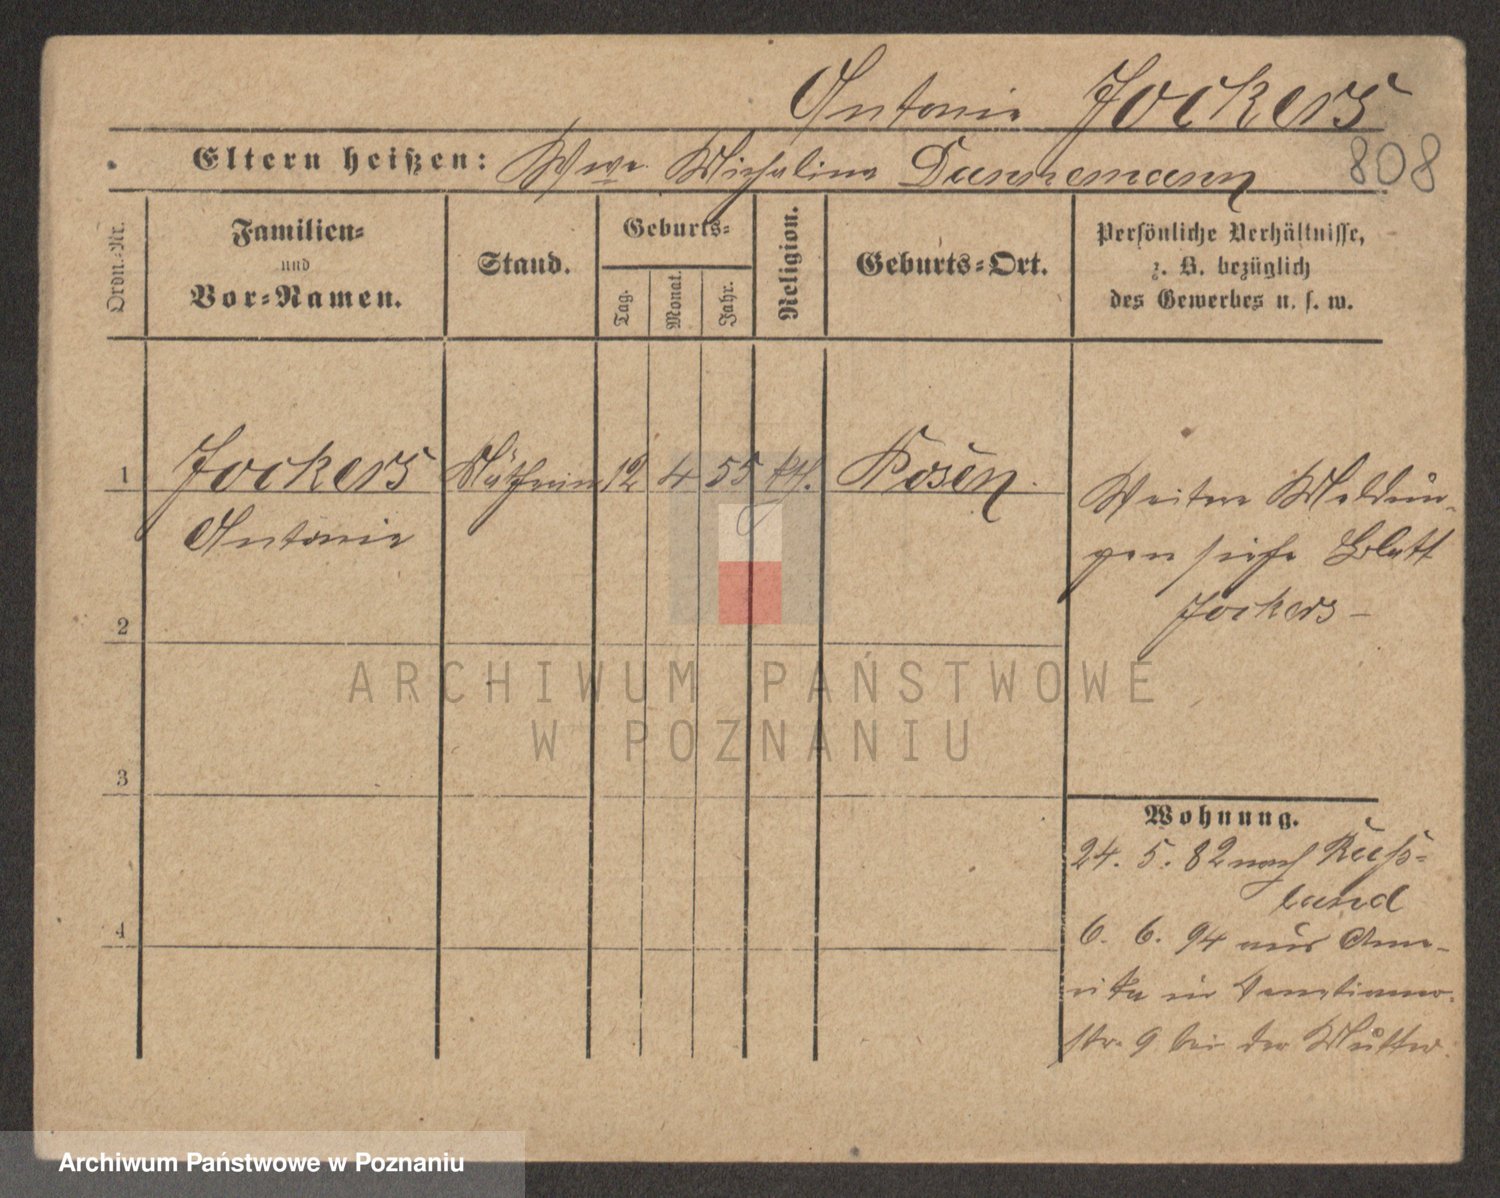 Antonie Jockers
Eltern heißen: Wwe Michalina Dannemann
808
Ordn.-Nr.
Familien-
und
Vor-Namen.
Stand.
Geburts-
Tag.
Monat.
Jahr.
Religion.
Geburts-Ort.
Persönliche Verhältnisse,
z. B. bezüglich
des Gewerbes u. s. w.
1 Jockers Näherin 12 4 55 kth. Posen
Antonie
Weitere Meldun-
gen siehe Blatt
Jockers -
2
3
4
Wohnung.
24. 5. 82 nach Russ-
land
6. 6. 94 aus Ame-
rika in
str. 9 bei der Mutter.
ARCHIWUM PAŃSTWOWE
W POZNANIU
Archiwum Państwowe w Poznaniu